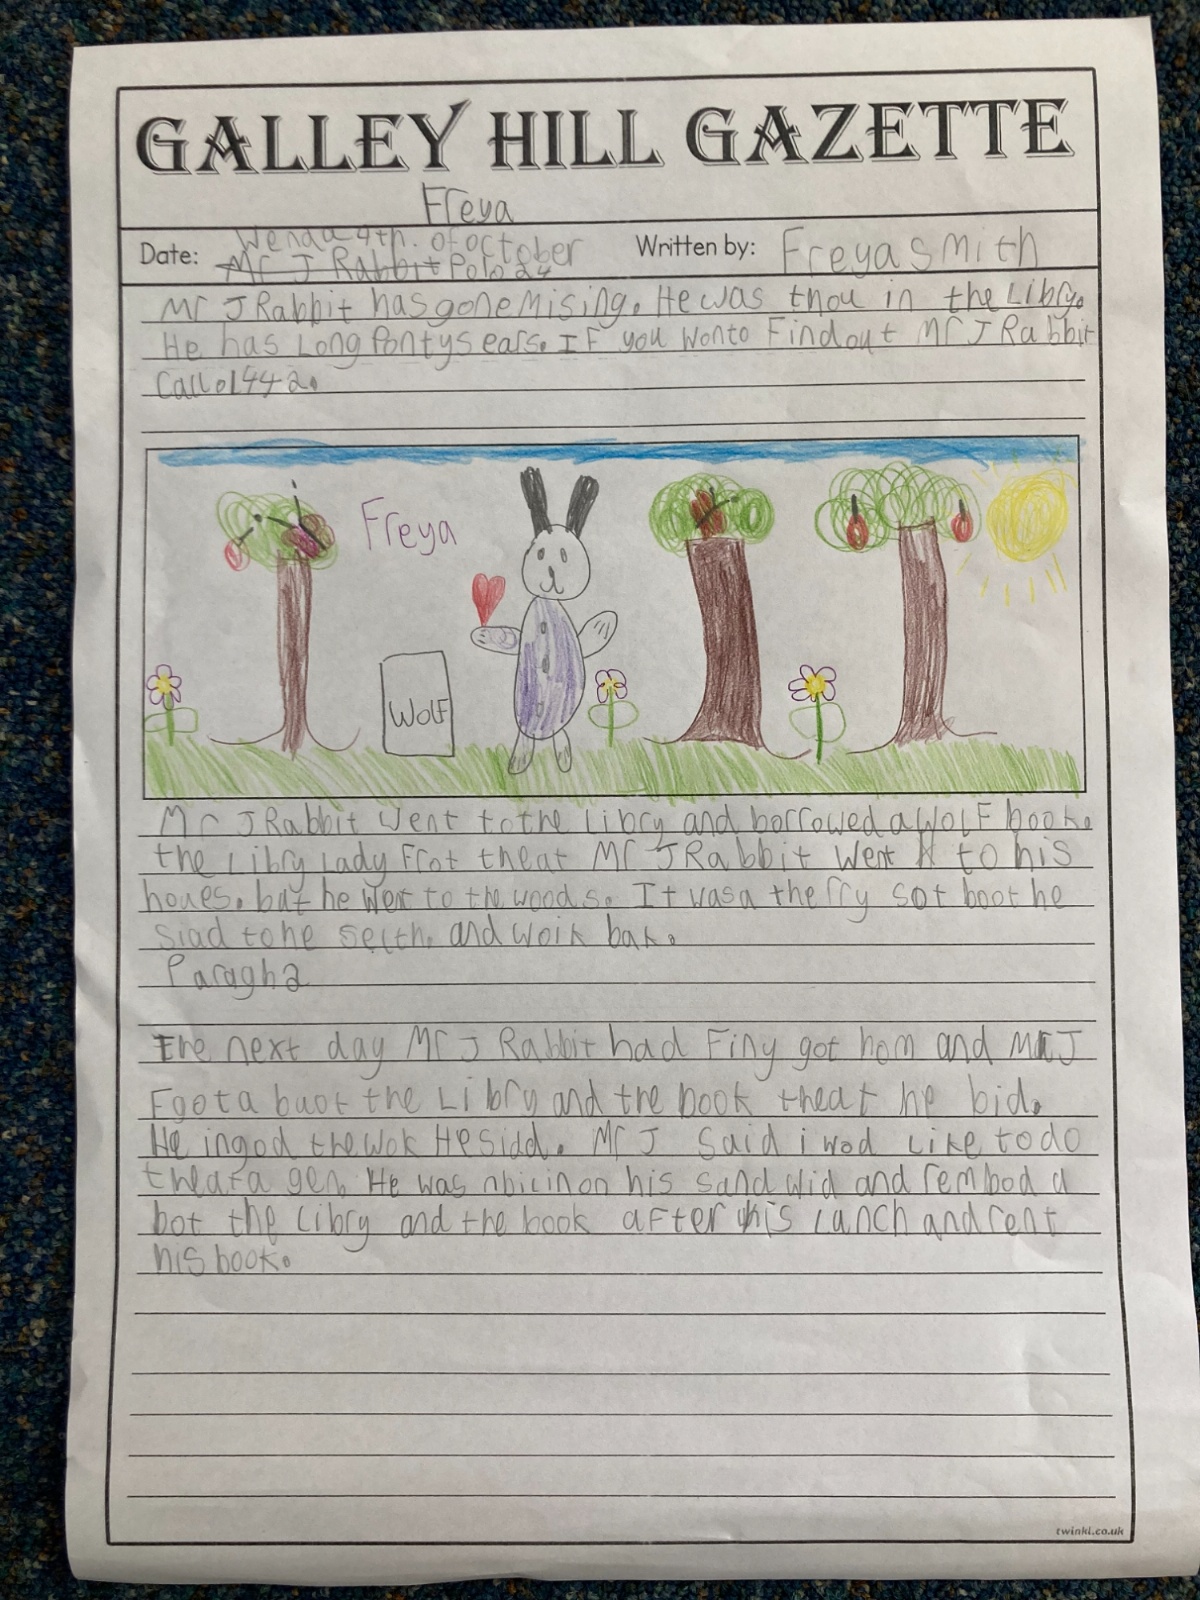 GALLEY HILL GAZETTE
Freya
Date: Wenda 4th. of october
Mr J Rabbit Polo 24
Written by: Freya smith
Mr J Rabbit has gone Mising. He was thou in the Libry.
He has Long Pontys ears. IF you wonto Find out Mr J Rabbit
Call 01442.
Freya
WOLF
Mr J Rabbit went to the Libry and borrowed a WOLF book.
the Libry Lady Frot theat Mr J Rabbit went to his
houes. but he went to the woods. It was a therry sot boot he
siad to he selth. and woik bak.
Paragh 2
The next day Mr J Rabbit had Finy got hom and Mr J
Fgot a buot the Libry and the book theat he bid.
He ingod the wok He sidd. Mr J said i wod Like to do
theat a gen. He was nbicin on his sand wid and rembod a
bot the Libry and the book after his Lanch and rent
his book.
twinkl.co.uk